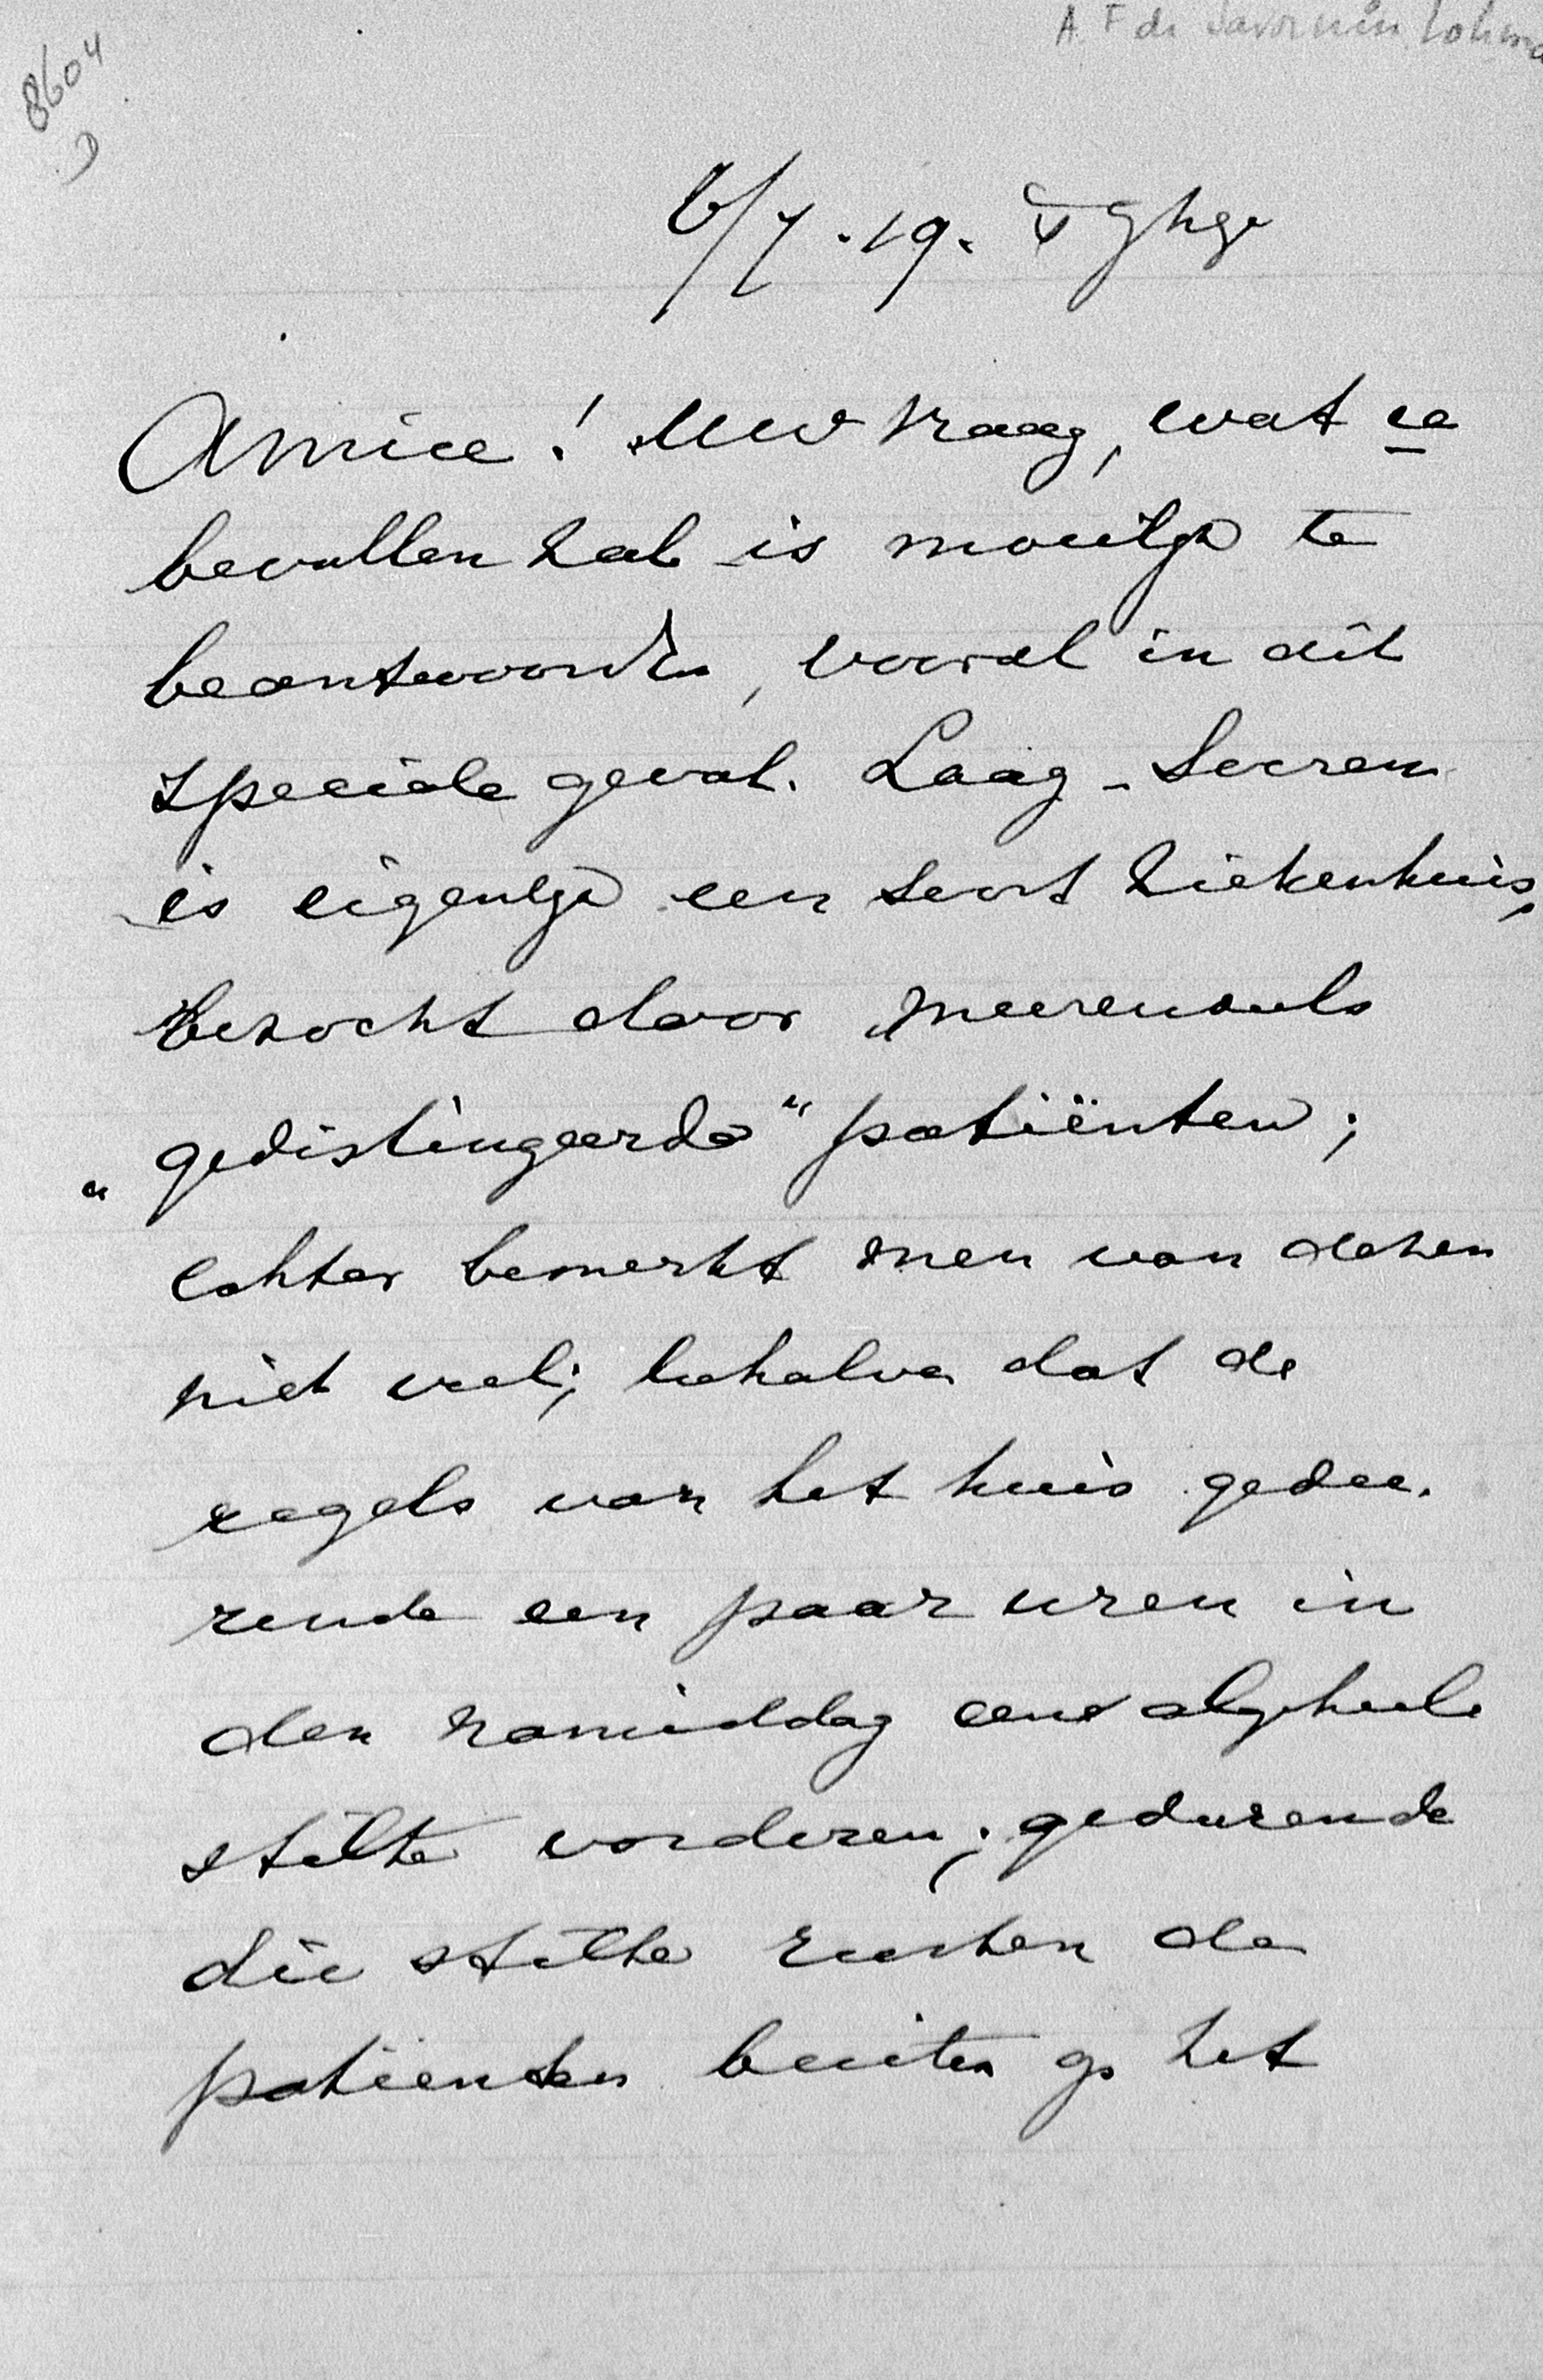 A. F de Savornin Lohma
8604
D
6/7.19. 's Ghge
Amice! Uw vraag, wat u
bevallen zal is moeilijk te
beantwoorden, vooral in dit
speciale geval. Laag-Soeren
is eigenlijk een soort ziekenhuis,
bezocht door meerendeels
„gedistingeerde“ patiënten;
echter bemerkt men van dezen
niet veel; behalve dat de
regels van het huis gedu-
rende een paar uren in
den namiddag eene algeheele
stilte vorderen; gedurende
die stilte rusten de
patienten buiten op het